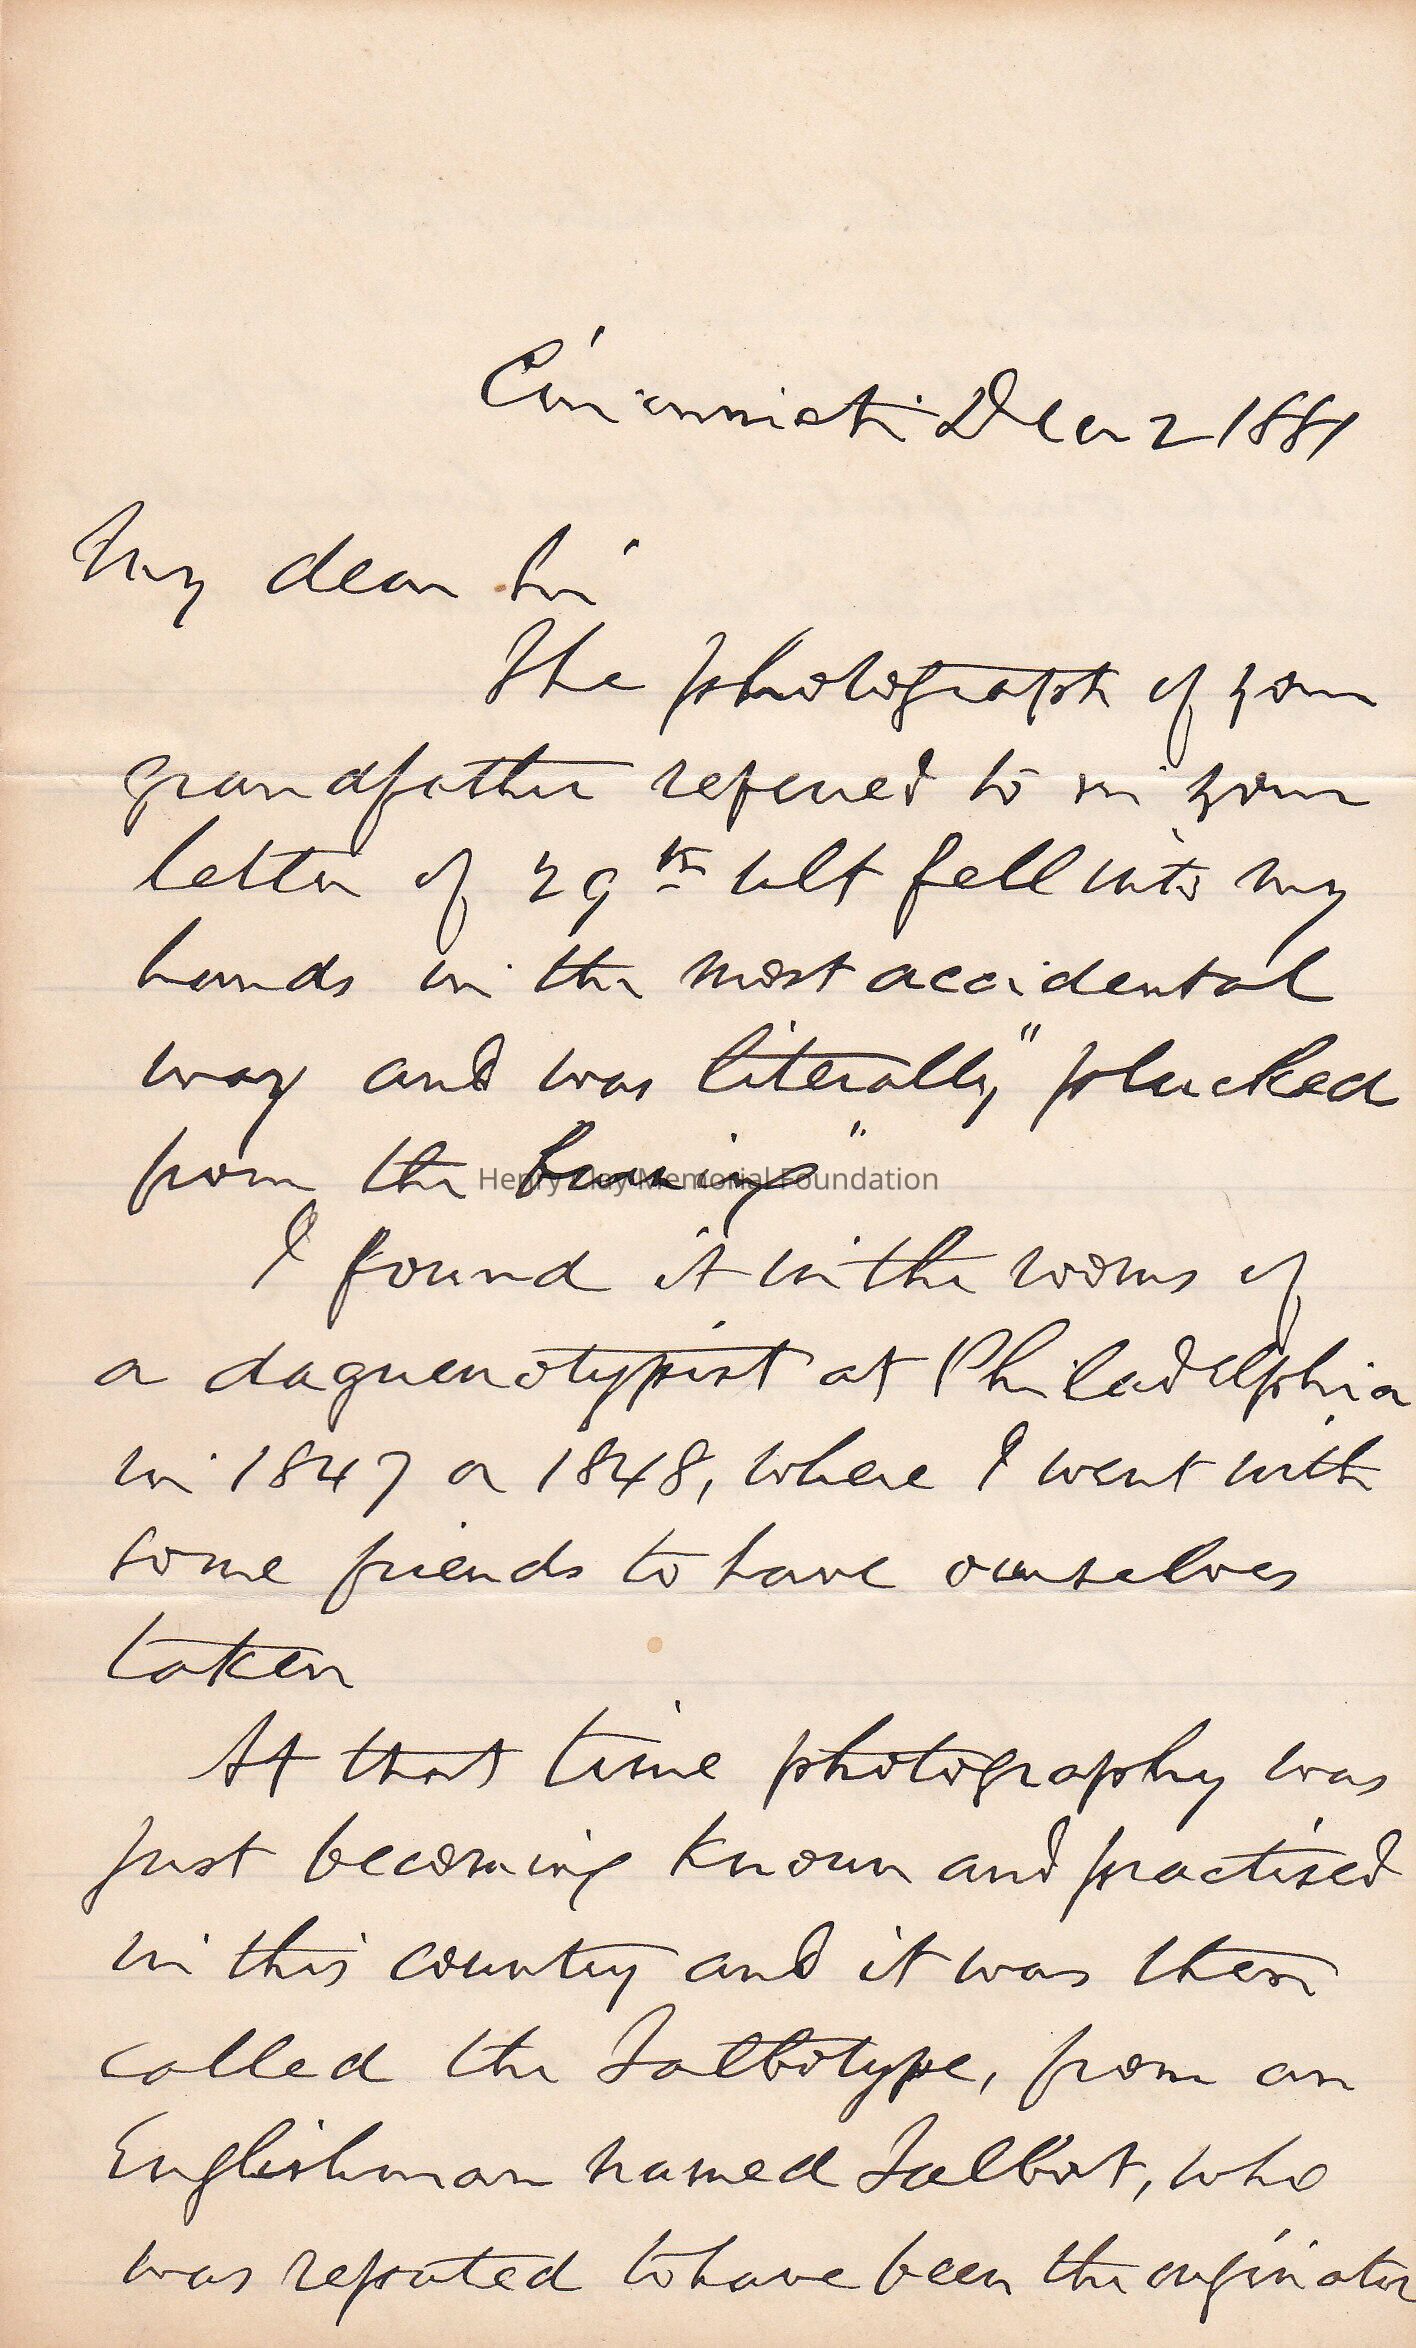 Cincinnati Decr 2 1881
My dear Sir
The photograph of your
grandfather referred to in your
letter of 29th ult fell into my
hands in the most accidental
way and was literally "plucked
from the burning"
Henry Clay Memorial Foundation
I found it in the rooms of
a daguerreotypist at Philadelphia
in 1847 or 1848, where I went with
some friends to have ourselves
taken
At that time photography was
just becoming known and practised
in this country and it was then
called the Talbotype, from an
Englishman named Talbot, who
was reputed to have been the originator